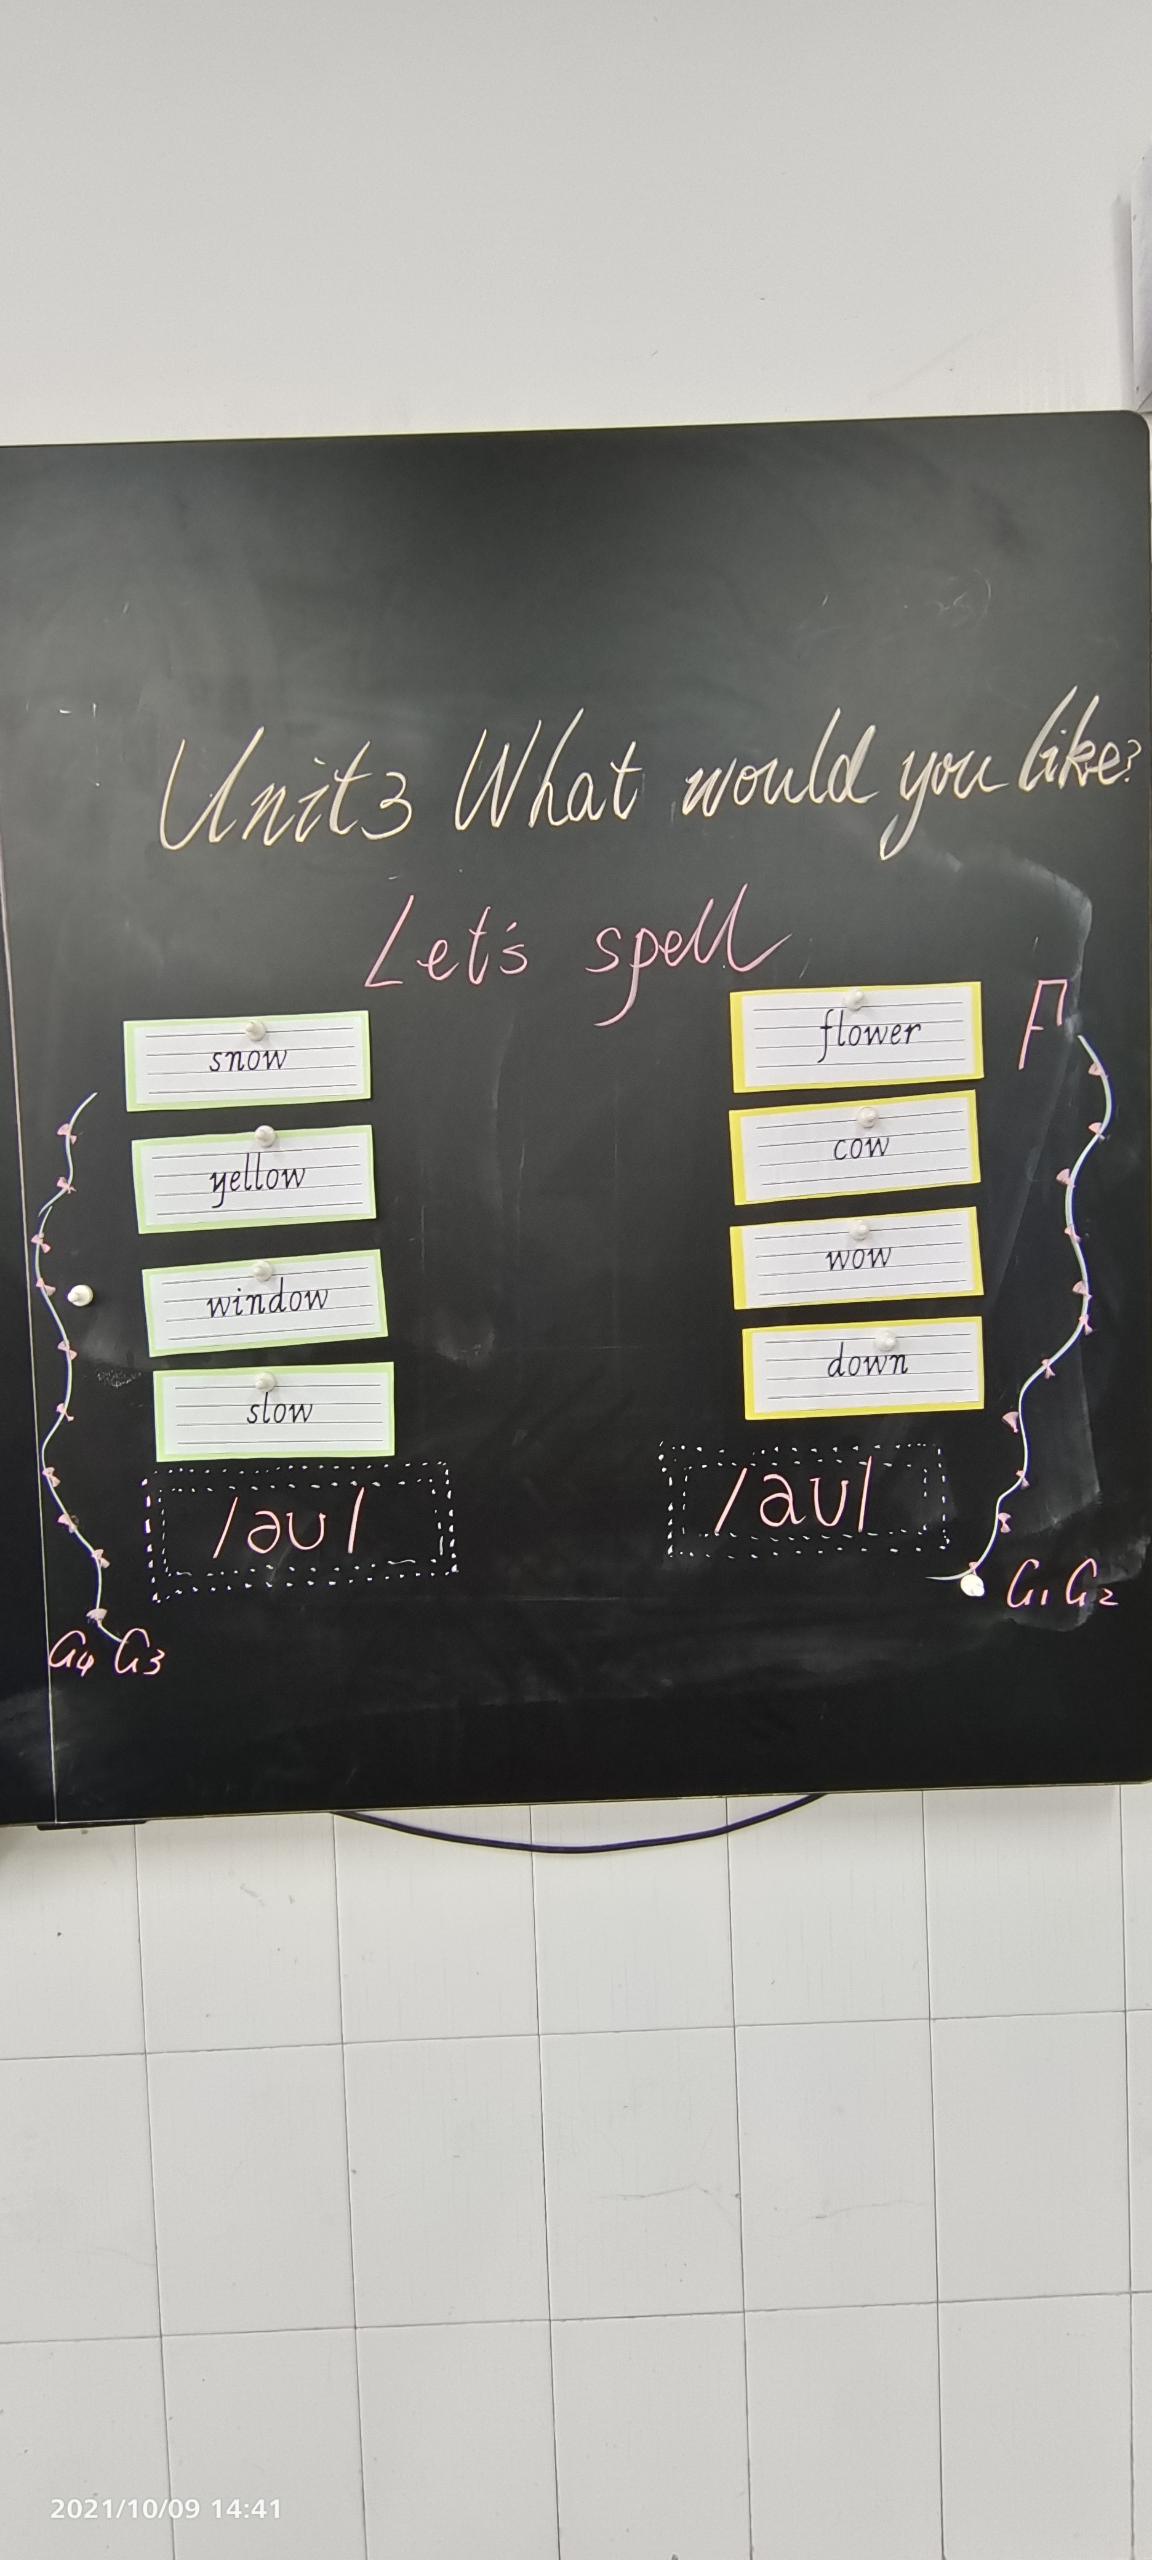 Unit3 What would you like?
Let's spell
snow
yellow
window
slow
/əʊ/
G4 G3
flower
cow
wow
down
/aʊ/
G1 G2
2021/10/09 14:41